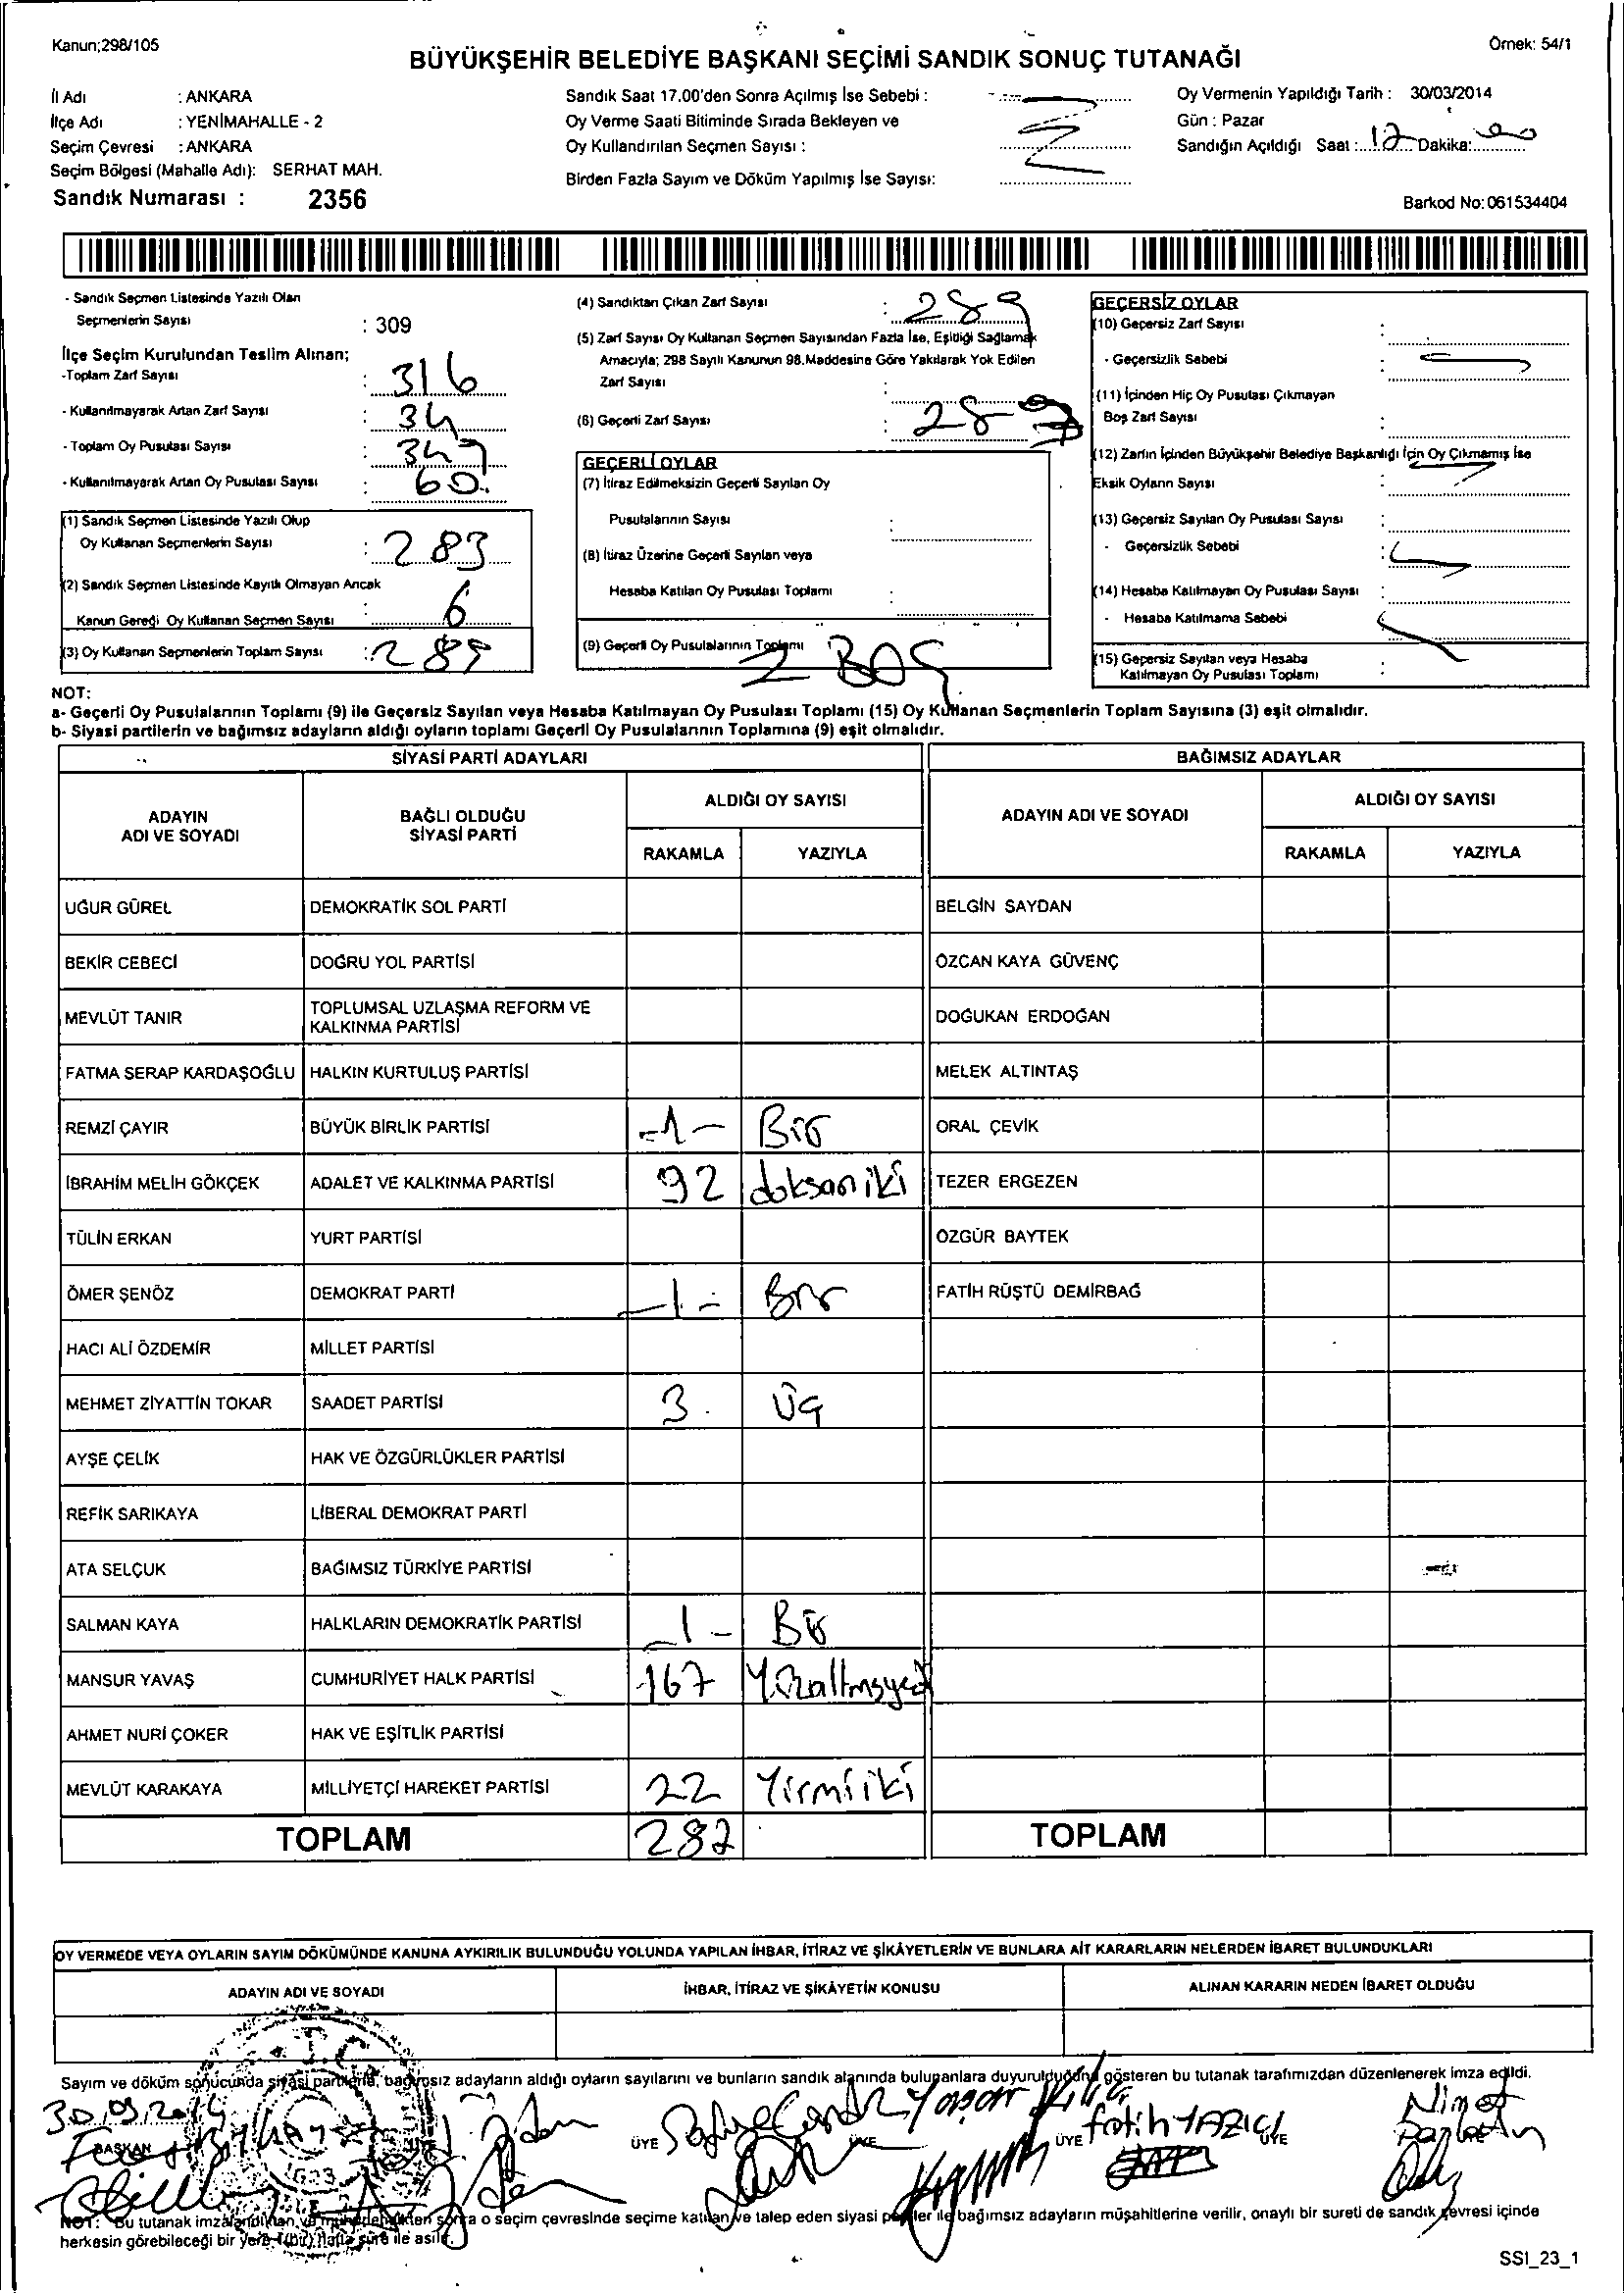 Kanun;298/105
Örnek: 54/1
BÜYÜKŞEHİR BELEDİYE BAŞKANI SEÇİMİ SANDIK SONUÇ TUTANAĞI
İl Adı : ANKARA
İlçe Adı : YENİMAHALLE - 2
Seçim Çevresi : ANKARA
Seçim Bölgesi (Mahalle Adı): SERHAT MAH.
Sandık Numarası : 2356
Sandık Saat 17.00'den Sonra Açılmış İse Sebebi :
Oy Verme Saati Bitiminde Sırada Bekleyen ve
Oy Kullandırılan Seçmen Sayısı :
Birden Fazla Sayım ve Döküm Yapılmış İse Sayısı:
Oy Vermenin Yapıldığı Tarih : 30/03/2014
Gün : Pazar
Sandığın Açıldığı Saat : 17 Dakika: 00
Barkod No: 061534404
- Sandık Seçmen Listesinde Yazılı Olan
Seçmenlerin Sayısı : 309
İlçe Seçim Kurulundan Teslim Alınan;
-Toplam Zarf Sayısı : 316
- Kullanılmayarak Artan Zarf Sayısı : 34
- Toplam Oy Pusulası Sayısı : 349
- Kullanılmayarak Artan Oy Pusulası Sayısı : 60
(1) Sandık Seçmen Listesinde Yazılı Olup
Oy Kullanan Seçmenlerin Sayısı : 283
(2) Sandık Seçmen Listesinde Kayıtlı Olmayan Ancak
Kanun Gereği Oy Kullanan Seçmen Sayısı : 6
(3) Oy Kullanan Seçmenlerin Toplam Sayısı : 289
(4) Sandıktan Çıkan Zarf Sayısı : 289
(5) Zarf Sayısı Oy Kullanan Seçmen Sayısından Fazla İse, Eşitliği Sağlamak
Amacıyla; 298 Sayılı Kanunun 98.Maddesine Göre Yakılarak Yok Edilen
Zarf Sayısı :
(6) Geçerli Zarf Sayısı : 289
GEÇERLİ OYLAR
(7) İtiraz Edilmeksizin Geçerli Sayılan Oy
Pusulalarının Sayısı :
(8) İtiraz Üzerine Geçerli Sayılan veya
Hesaba Katılan Oy Pusulası Toplamı :
(9) Geçerli Oy Pusulalarının Toplamı
2 BOŞ
GEÇERSİZ OYLAR
(10) Geçersiz Zarf Sayısı :
- Geçersizlik Sebebi :
(11) İçinden Hiç Oy Pusulası Çıkmayan
Boş Zarf Sayısı :
(12) Zarfın İçinden Büyükşehir Belediye Başkanlığı İçin Oy Çıkmamış İse
Eksik Oyların Sayısı :
(13) Geçersiz Sayılan Oy Pusulası Sayısı :
- Geçersizlik Sebebi :
(14) Hesaba Katılmayan Oy Pusulası Sayısı :
- Hesaba Katılmama Sebebi :
(15) Geçersiz Sayılan veya Hesaba
Katılmayan Oy Pusulası Toplamı :
NOT:
a- Geçerli Oy Pusulalarının Toplamı (9) ile Geçersiz Sayılan veya Hesaba Katılmayan Oy Pusulası Toplamı (15) Oy Kullanan Seçmenlerin Toplam Sayısına (3) eşit olmalıdır.
b- Siyasi partilerin ve bağımsız adayların aldığı oyların toplamı Geçerli Oy Pusulalarının Toplamına (9) eşit olmalıdır.
SİYASİ PARTİ ADAYLARI BAĞIMSIZ ADAYLAR
ADAYIN ADI VE SOYADI BAĞLI OLDUĞU SİYASİ PARTİ ALDIĞI OY SAYISI ADAYIN ADI VE SOYADI ALDIĞI OY SAYISI
RAKAMLA YAZIYLA RAKAMLA YAZIYLA
UĞUR GÜREL DEMOKRATİK SOL PARTİ BELGİN SAYDAN
BEKİR CEBECİ DOĞRU YOL PARTİSİ ÖZCAN KAYA GÜVENÇ
MEVLÜT TANIR TOPLUMSAL UZLAŞMA REFORM VE KALKINMA PARTİSİ DOĞUKAN ERDOĞAN
FATMA SERAP KARDAŞOĞLU HALKIN KURTULUŞ PARTİSİ MELEK ALTINTAŞ
REMZİ ÇAYIR BÜYÜK BİRLİK PARTİSİ -1- Bir ORAL ÇEVİK
İBRAHİM MELİH GÖKÇEK ADALET VE KALKINMA PARTİSİ 92 doksan iki TEZER ERGEZEN
TÜLİN ERKAN YURT PARTİSİ ÖZGÜR BAYTEK
ÖMER ŞENÖZ DEMOKRAT PARTİ -1- Bir FATİH RÜŞTÜ DEMİRBAĞ
HACI ALİ ÖZDEMİR MİLLET PARTİSİ
MEHMET ZİYATTİN TOKAR SAADET PARTİSİ 3 Üç
AYŞE ÇELİK HAK VE ÖZGÜRLÜKLER PARTİSİ
REFİK SARIKAYA LİBERAL DEMOKRAT PARTİ
ATA SELÇUK BAĞIMSIZ TÜRKİYE PARTİSİ
SALMAN KAYA HALKLARIN DEMOKRATİK PARTİSİ -1- Bir
MANSUR YAVAŞ CUMHURİYET HALK PARTİSİ 167
AHMET NURİ ÇOKER HAK VE EŞİTLİK PARTİSİ
MEVLÜT KARAKAYA MİLLİYETÇİ HAREKET PARTİSİ 22 Yirmi iki
TOPLAM 287 TOPLAM
OY VERMEDE VEYA OYLARIN SAYIM DÖKÜMÜNDE KANUNA AYKIRILIK BULUNDUĞU YOLUNDA YAPILAN İHBAR, İTİRAZ VE ŞİKÂYETLERİN VE BUNLARA AİT KARARLARIN NELERDEN İBARET BULUNDUKLARI
ADAYIN ADI VE SOYADI İHBAR, İTİRAZ VE ŞİKÂYETİN KONUSU ALINAN KARARIN NEDEN İBARET OLDUĞU
Sayım ve döküm sonucunda siyasi partilerle, bağımsız adayların aldığı oyların sayılarını ve bunların sandık alanında bulunanlara duyurulduğunu gösteren bu tutanak tarafımızdan düzenlenerek imza edildi.
30.03.2014
BAŞKAN ÜYE ÜYE ÜYE fatih YAZICI ÜYE Nimet
NOT: Bu tutanak imzalandıktan ve mühürlendikten sonra o seçim çevresinde seçime katılan ve talep eden siyasi partiler ile bağımsız adayların müşahitlerine verilir, onaylı bir sureti de sandık çevresi içinde
herkesin görebileceği bir yere 1 (bir) hafta süre ile asılır.
SSI_23_1